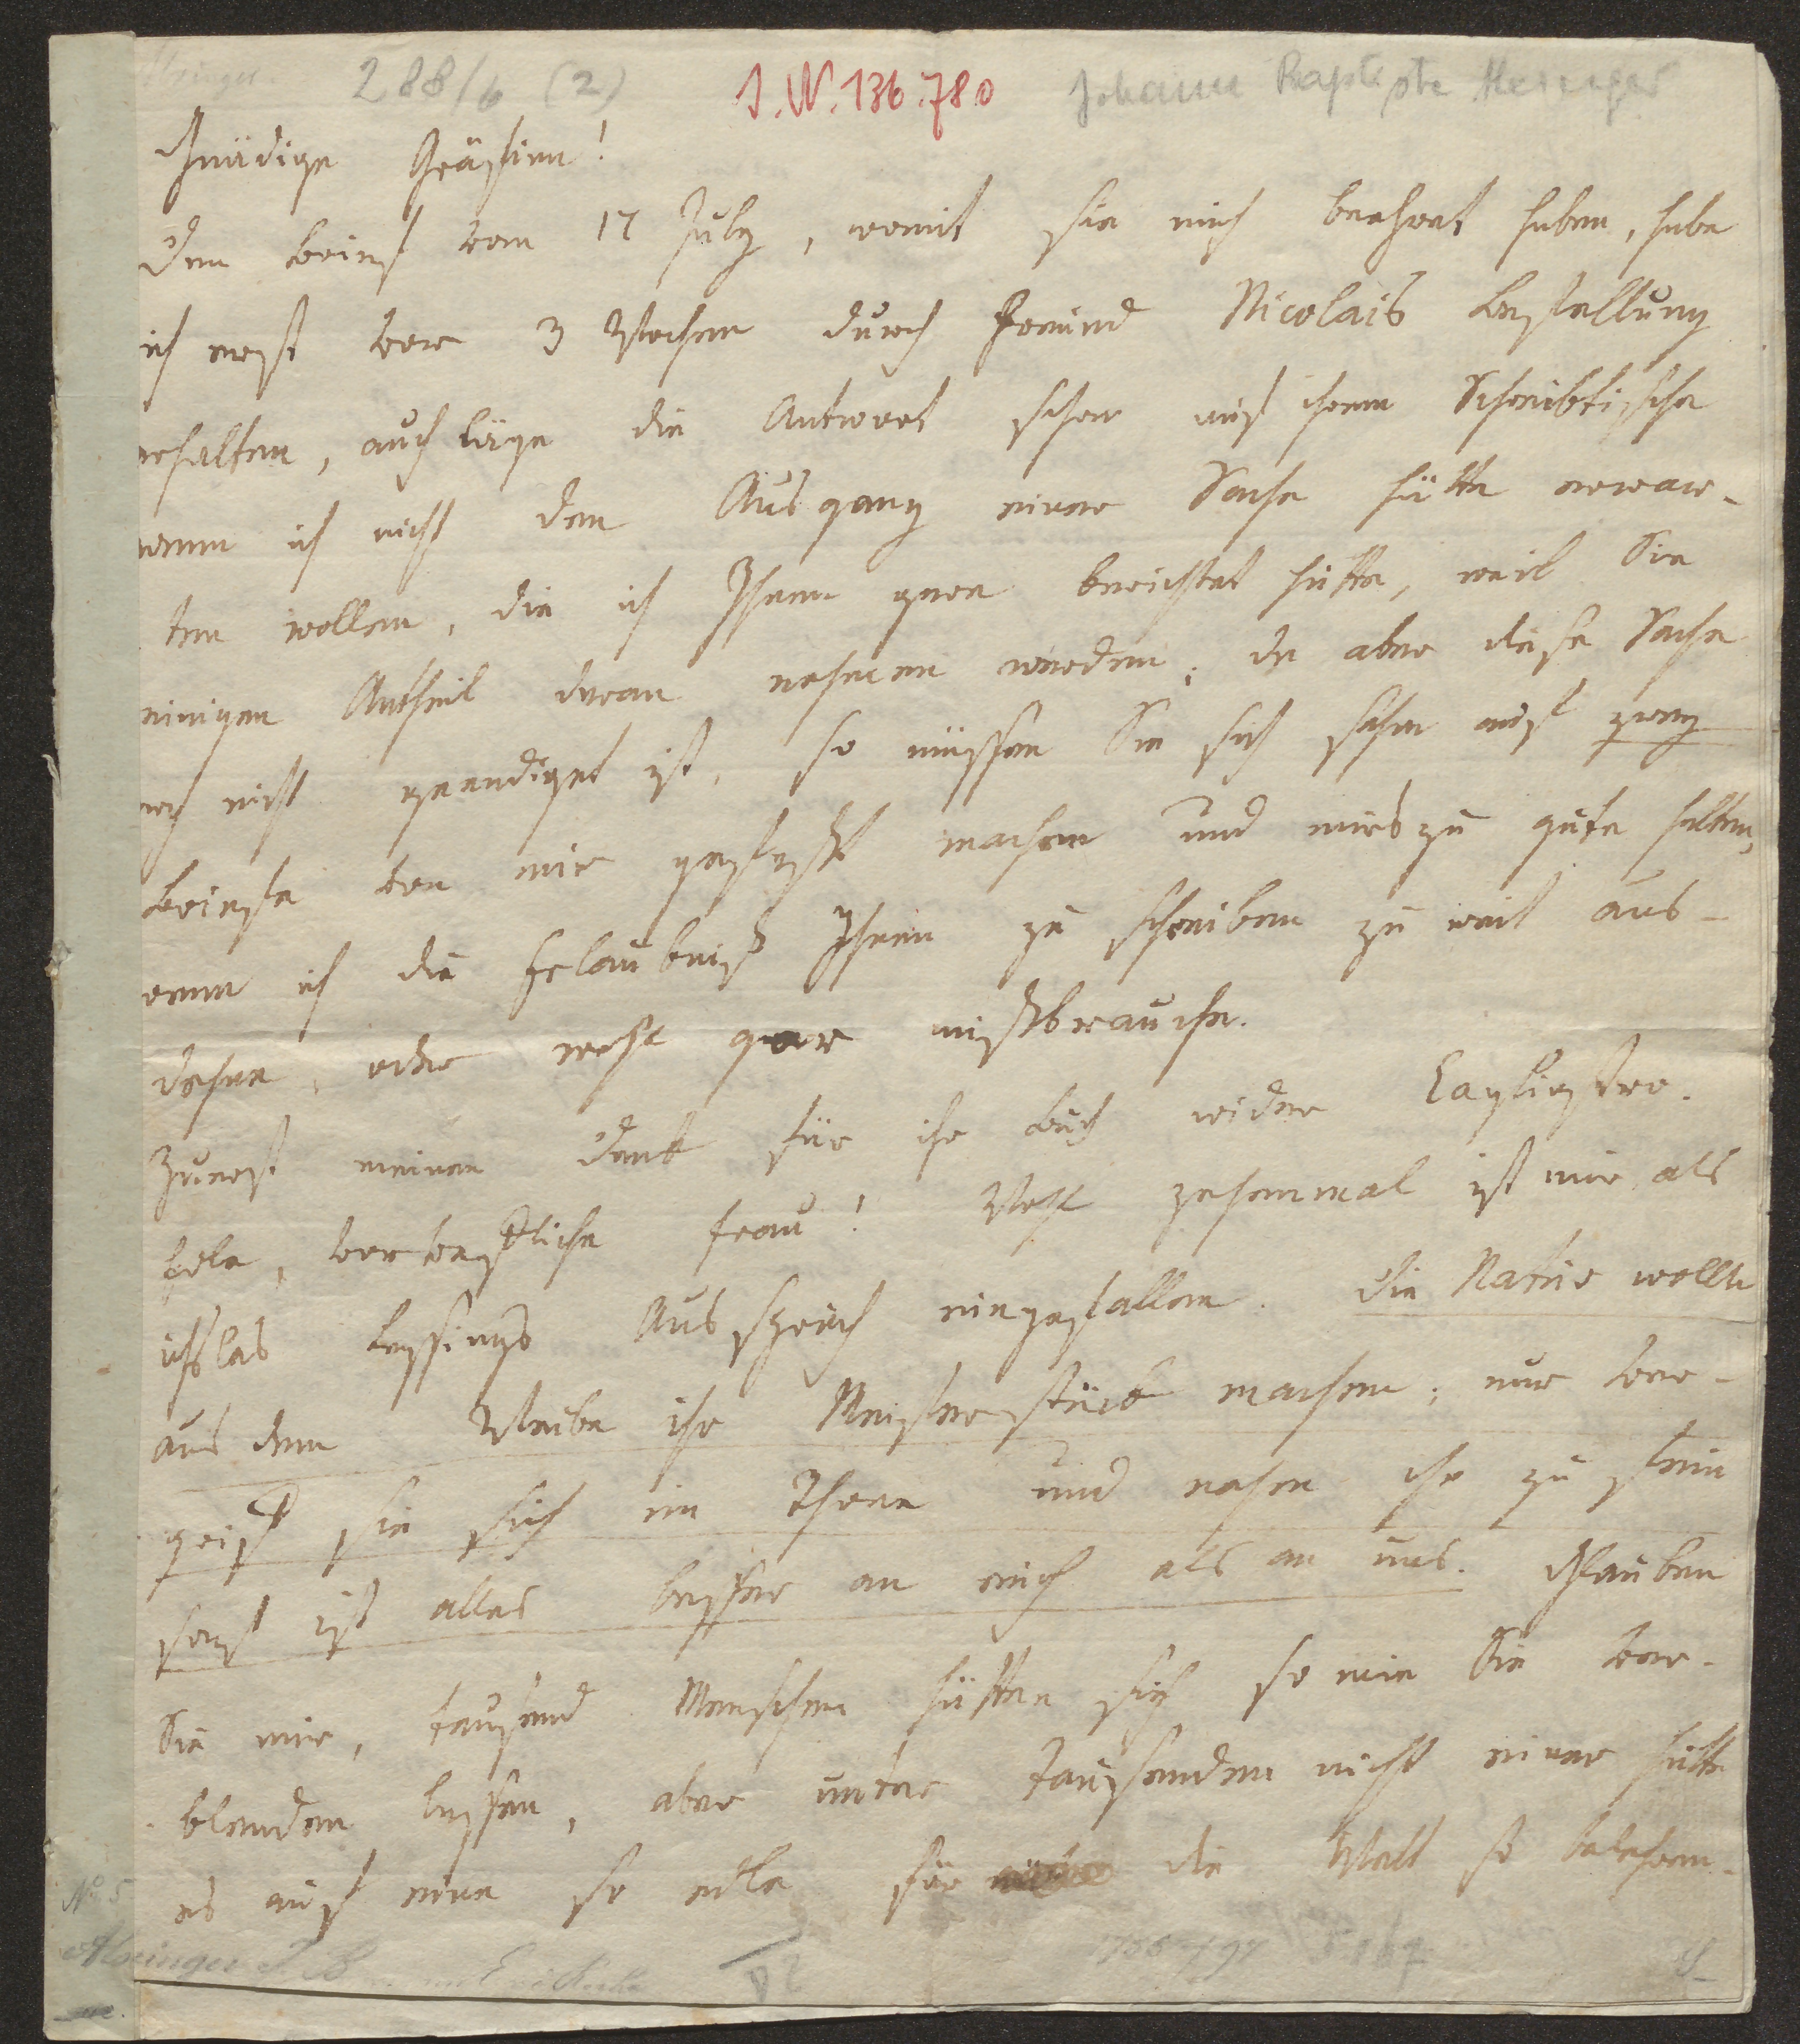 288/6 (2) J.N. 136.780 Johann Baptiste Alxinger
Gnädige Gräfinn!
Den Brief vom 17 July, womit sie mich beehret haben, habe
ich erst vor 3 Wochen durch Freund Nicolais Bestellung
erhalten, auch läge die Antwort schon auf ihrem Schreibtische
wenn ich nicht den Ausgang einer Sache hätte erwar-
ten wollen, die ich Ihnen gern berichtet hätte, weil Sie
einigen Antheil daran nehmen werden; da aber diese Sache
noch nicht geendiget ist, so müssen Sie sich schon auf zwey
Briefe von mir gefaßt machen und mirs zu gute halten,
wenn ich die Erlaubniß Ihnen zu schreiben zu weit aus-
dehne, oder wohl gar mißbrauche.
Zuerst meinen Dank für ihr Buch wider Cagliostro.
Edle, vortreffliche Frau! Wohl zehenmal ist mir als
ichs las Lessings Ausspruch eingefallen. Die Natur wollte
aus dem Weibe ihr Meisterstück machen; nur ver-
griff sie sich im Thone und nahm ihn zu fein
sonst ist alles besser an euch als an uns. Glauben
Sie mir, tausend Menschen hätten sich so wie Sie ver-
blenden lassen, aber unter Tausenden nicht einer hätte
es auf eine so edle für die Welt so belehren-
No 5
Alxinger J. B.
1755-1797